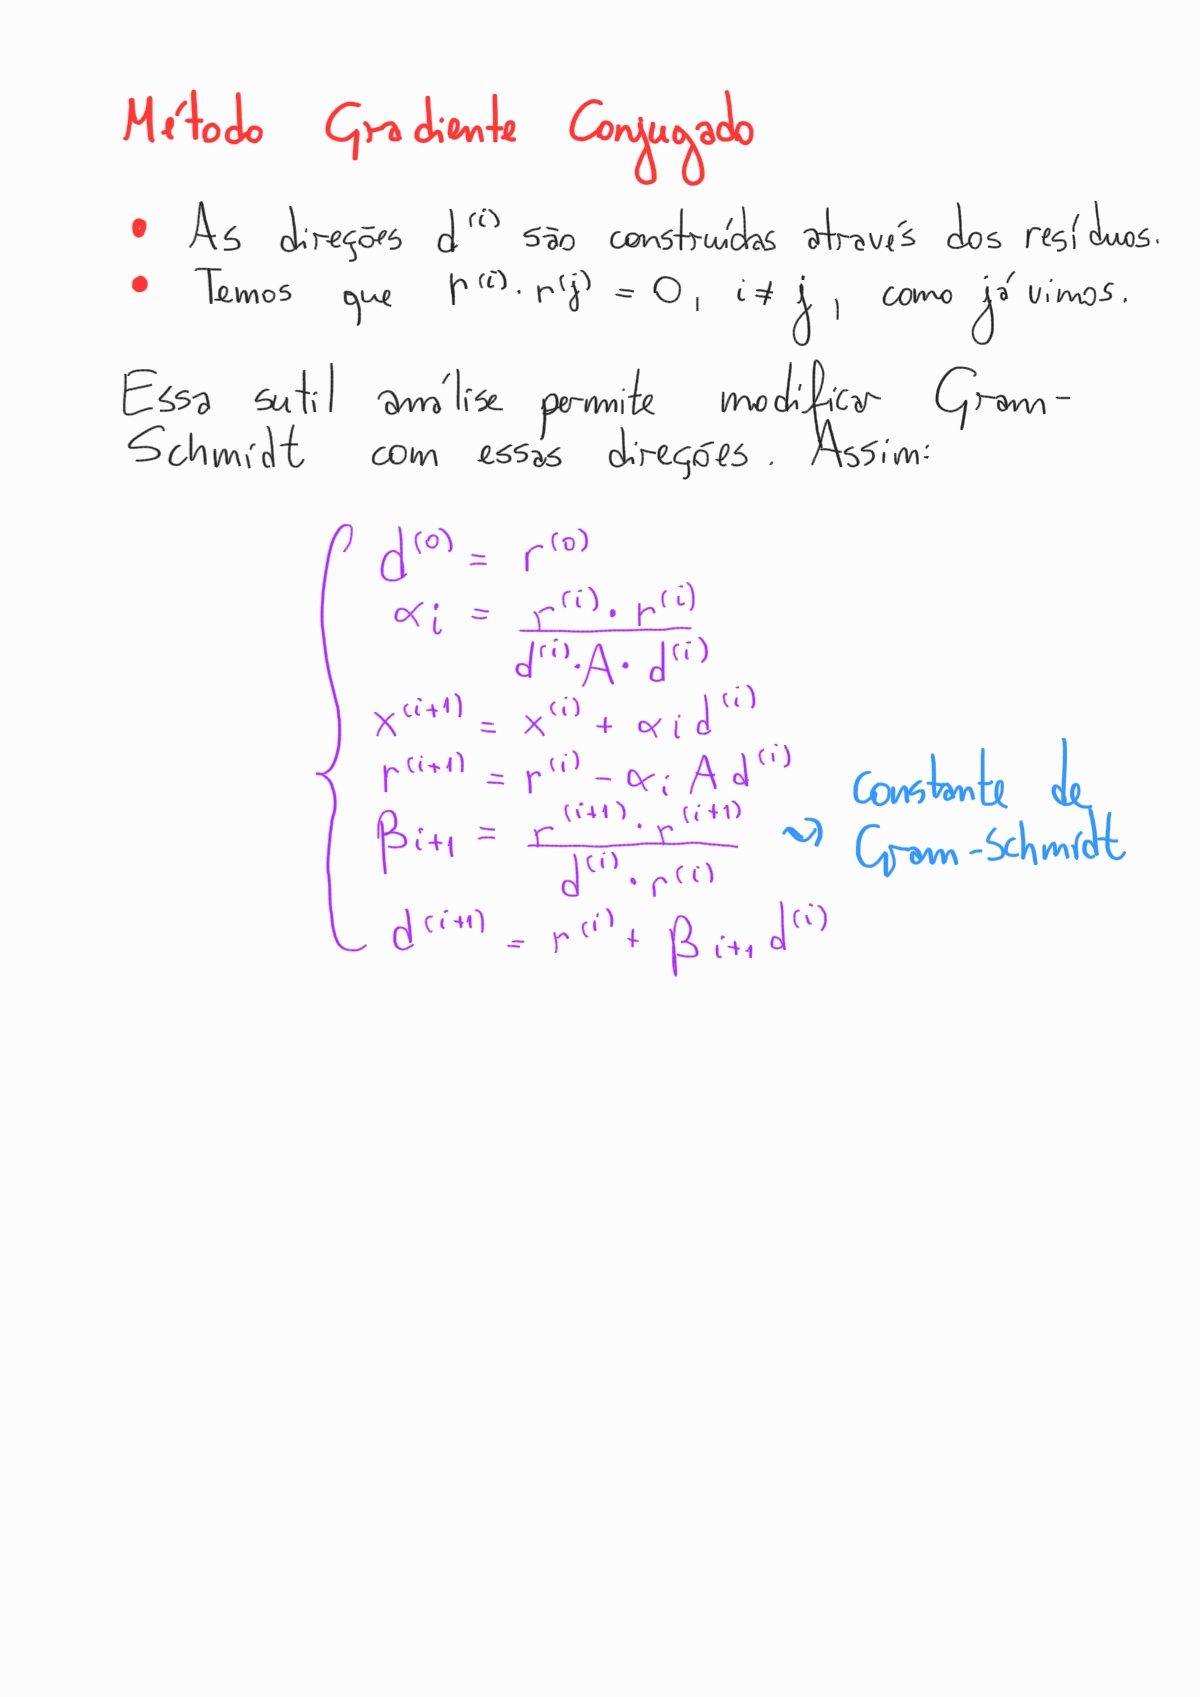 Método Gradiente Conjugado
• As direções d^(i) são construídas através dos resíduos.
• Temos que r^(i) · r^(j) = 0, i ≠ j, como já vimos.
Essa sutil análise permite modificar Gram-
Schmidt com essas direções. Assim:
d^(0) = r^(0)
α_i = (r^(i) · r^(i)) / (d^(i) · A · d^(i))
x^(i+1) = x^(i) + α_i d^(i)
r^(i+1) = r^(i) - α_i A d^(i)
β_{i+1} = (r^(i+1) · r^(i+1)) / (d^(i) · r^(i)) ⤳ Constante de
Gram-Schmidt
d^(i+1) = r^(i) + β_{i+1} d^(i)